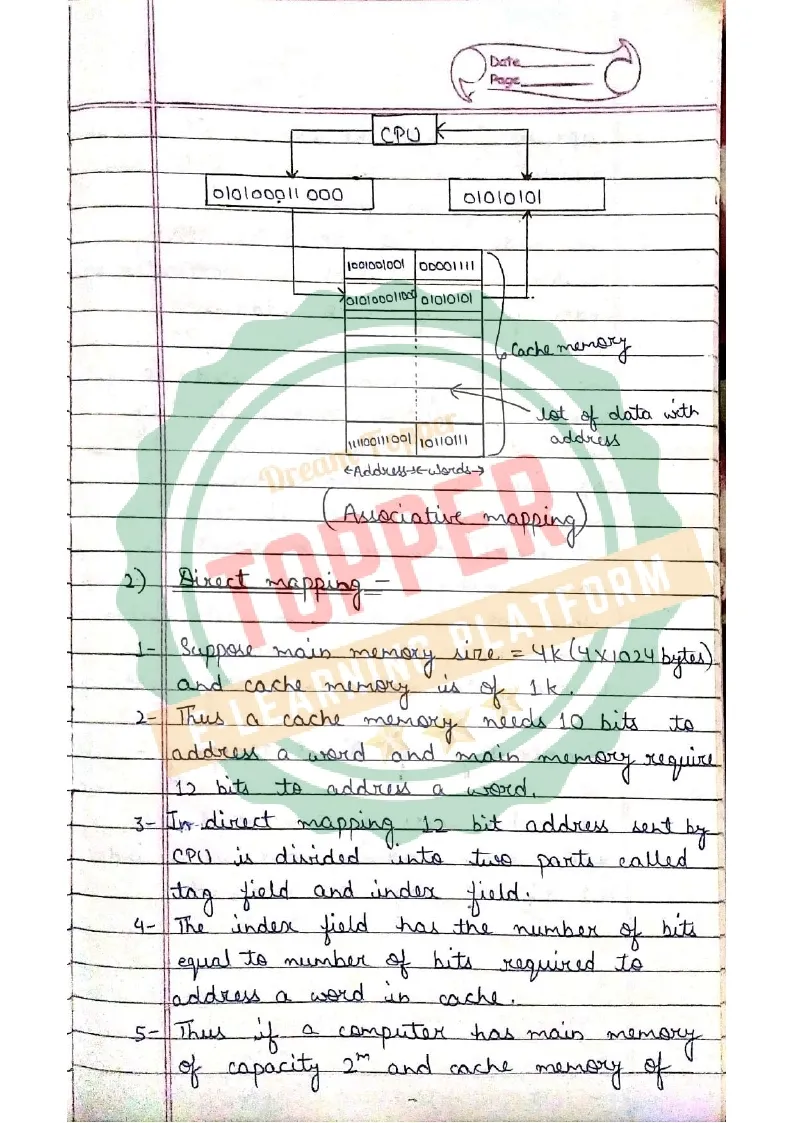 Date
Page
CPU
010100011000
01010101
1001001001 00001111
010100011000 01010101
Cache memory
lot of data with
address
111100111001 10110111
Address words
(Associative mapping)
2) Direct mapping -
1- Suppose main memory size = 4K (4x1024 bytes)
and cache memory is of 1k.
2- Thus a cache memory needs 10 bits to
address a word and main memory require
12 bits to address a word.
3- In direct mapping 12 bit address sent by
CPU is divided into two parts called
tag field and index field.
4- The index field has the number of bits
equal to number of bits required to
address a word in cache.
5- Thus if a computer has main memory
of capacity 2^m and cache memory of
Dream Topper
TOPPER
E-LEARNING PLATFORM